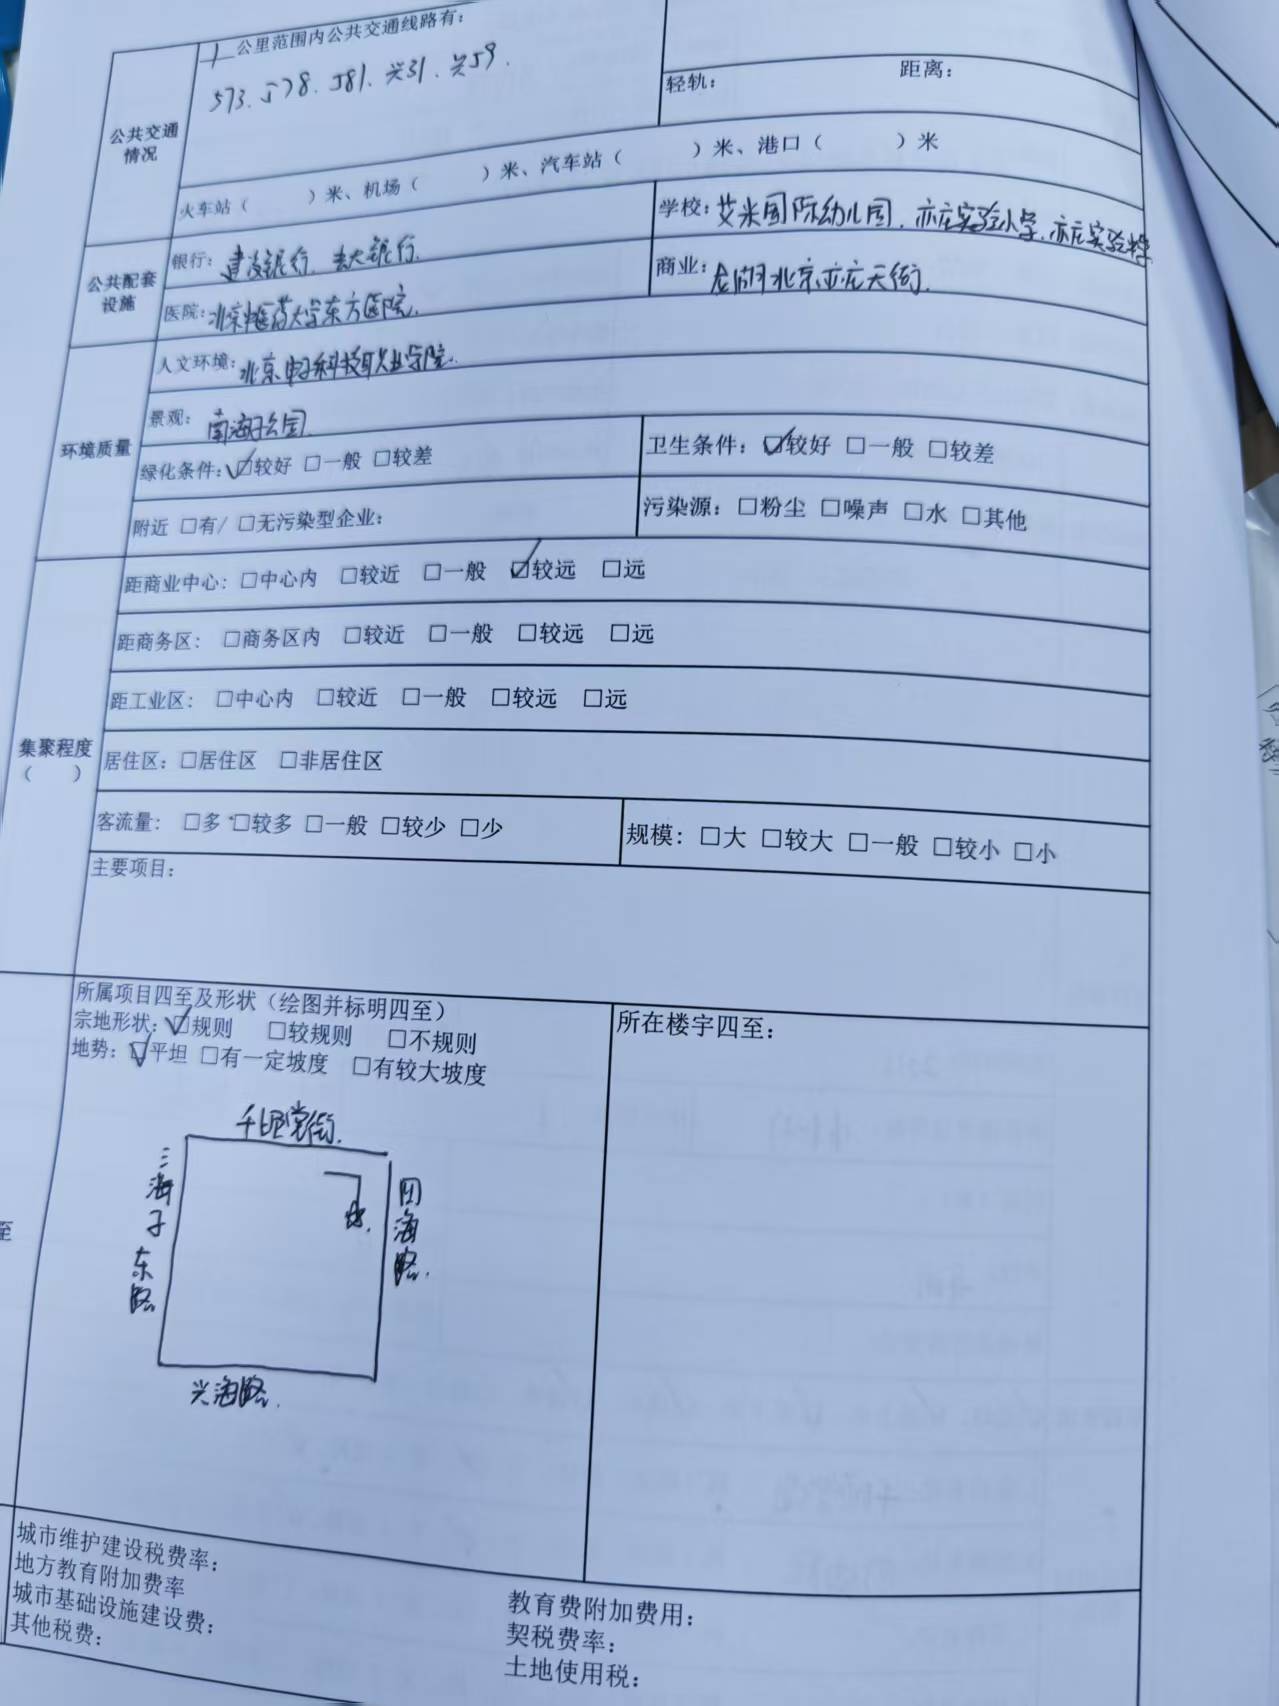 1 公里范围内公共交通线路有：
573. 578. 581. 兴31. 兴59.
轻轨： 距离：
公共交通
情况
火车站（ ）米、机场（ ）米、汽车站（ ）米、港口（ ）米
公共配套
设施
银行：建设银行. 光大银行.
学校：艾米国际幼儿园. 亦庄实验小学. 亦庄实验中学
医院：北京中医药大学东方医院.
商业：龙湖北京亦庄天街.
环境质量
人文环境：北京电子科技职业学院.
景观：南海子公园
绿化条件：☑较好 □一般 □较差
卫生条件：☑较好 □一般 □较差
附近 □有/ □无污染型企业：
污染源：□粉尘 □噪声 □水 □其他
集聚程度
（ ）
距商业中心：□中心内 □较近 □一般 ☑较远 □远
距商务区： □商务区内 □较近 □一般 □较远 □远
距工业区： □中心内 □较近 □一般 □较远 □远
居住区：□居住区 □非居住区
客流量： □多 □较多 □一般 □较少 □少
规模：□大 □较大 □一般 □较小 □小
主要项目：
至
所属项目四至及形状（绘图并标明四至）
宗地形状：☑规则 □较规则 □不规则
地势：☑平坦 □有一定坡度 □有较大坡度
所在楼宇四至：
三海子东路
兴海路.
城市维护建设税费率：
地方教育附加费率
城市基础设施建设费：
其他税费：
教育费附加费用：
契税费率：
土地使用税：